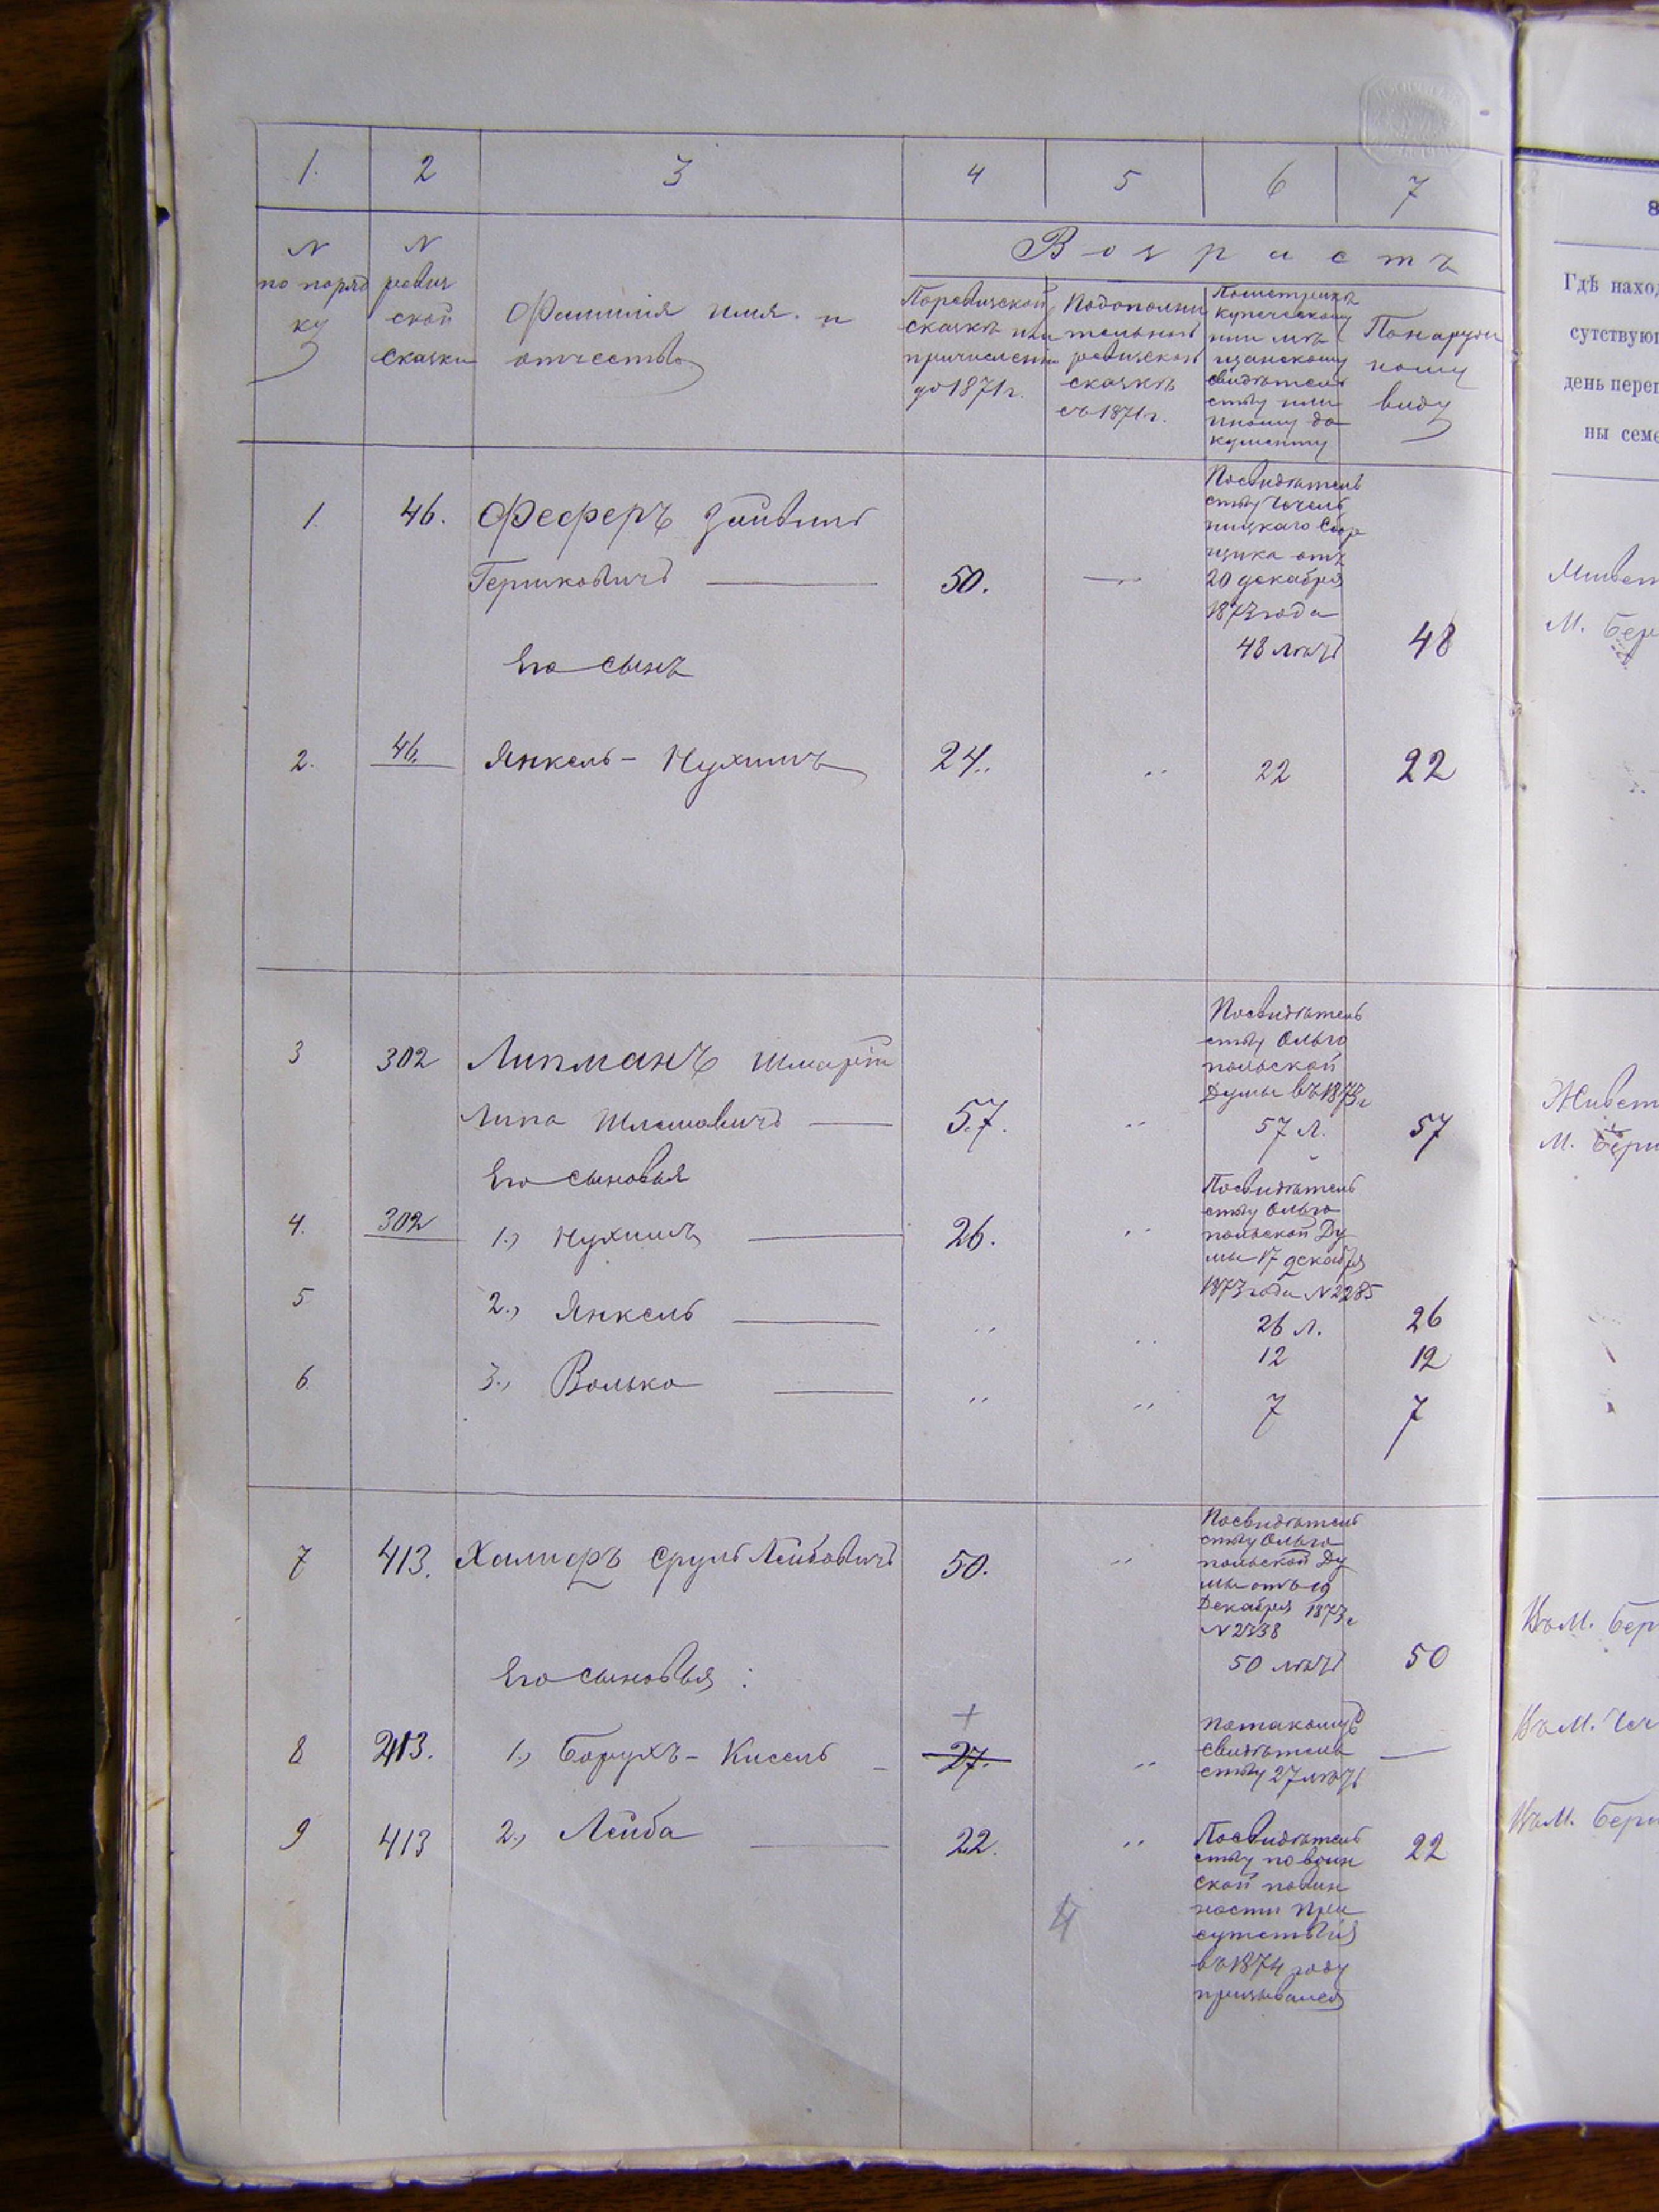 1. 2 3 4 5 6 7
Возрастъ
N по поряд ку
N ревиз ской сказки
Фамилія имя и отчество
По ревизской сказкѣ или причислен до 1871 г.
По дополни тельной ревизской сказкѣ съ 1871 г.
купеческому или мѣ щанскому свидѣтель ству или иному до кументу
По наруж ному виду
1. 46. Феферъ Зайвель
Гершковичъ — 50. —
По свидѣтель
ству Чечель
ницкаго Сбор
щика отъ
20 декабря
1873 года
48 лѣтъ 48
Его сынъ
2. 46. Янкель - Нухимъ 24. " 22 22
3 302 Липманъ
Липа Шлемовичъ — 57. "
По свидѣтель
ству Ольго
польской
Думы въ 1873 г
57 л. 57
Его сыновья
4. 302 1., Нухимъ — 26. "
По свидѣтель
ству Ольго
польской Ду
мы 17 декабря
1873 года N 2285
26 л. 26
5 2., Янкель — " " 12 12
6. 3., Волько — " " 7 7
7 413. Халифъ Сруль Лейбовичъ 50. "
По свидѣтель
ству Ольго
польской Ду
мы отъ 19
Декабря 1873 г
N 2338
50 лѣтъ 50
Его сыновья:
+
8 413. 1., Борухъ - Кисель - 27. "
По такому
свидѣтель
ству 27 лѣтъ —
9 413 2., Лейба — 22. "
По свидѣтель
ству по воин
ской повин
ности При
сутствія
въ 1874 году
призывался
22
4
8
Гдѣ наход
сутствую
день переп
ны семе
М. Бер
Живет
М. Бер
Въ М. Бер
Въ М. Чеч
Въ М. Берш